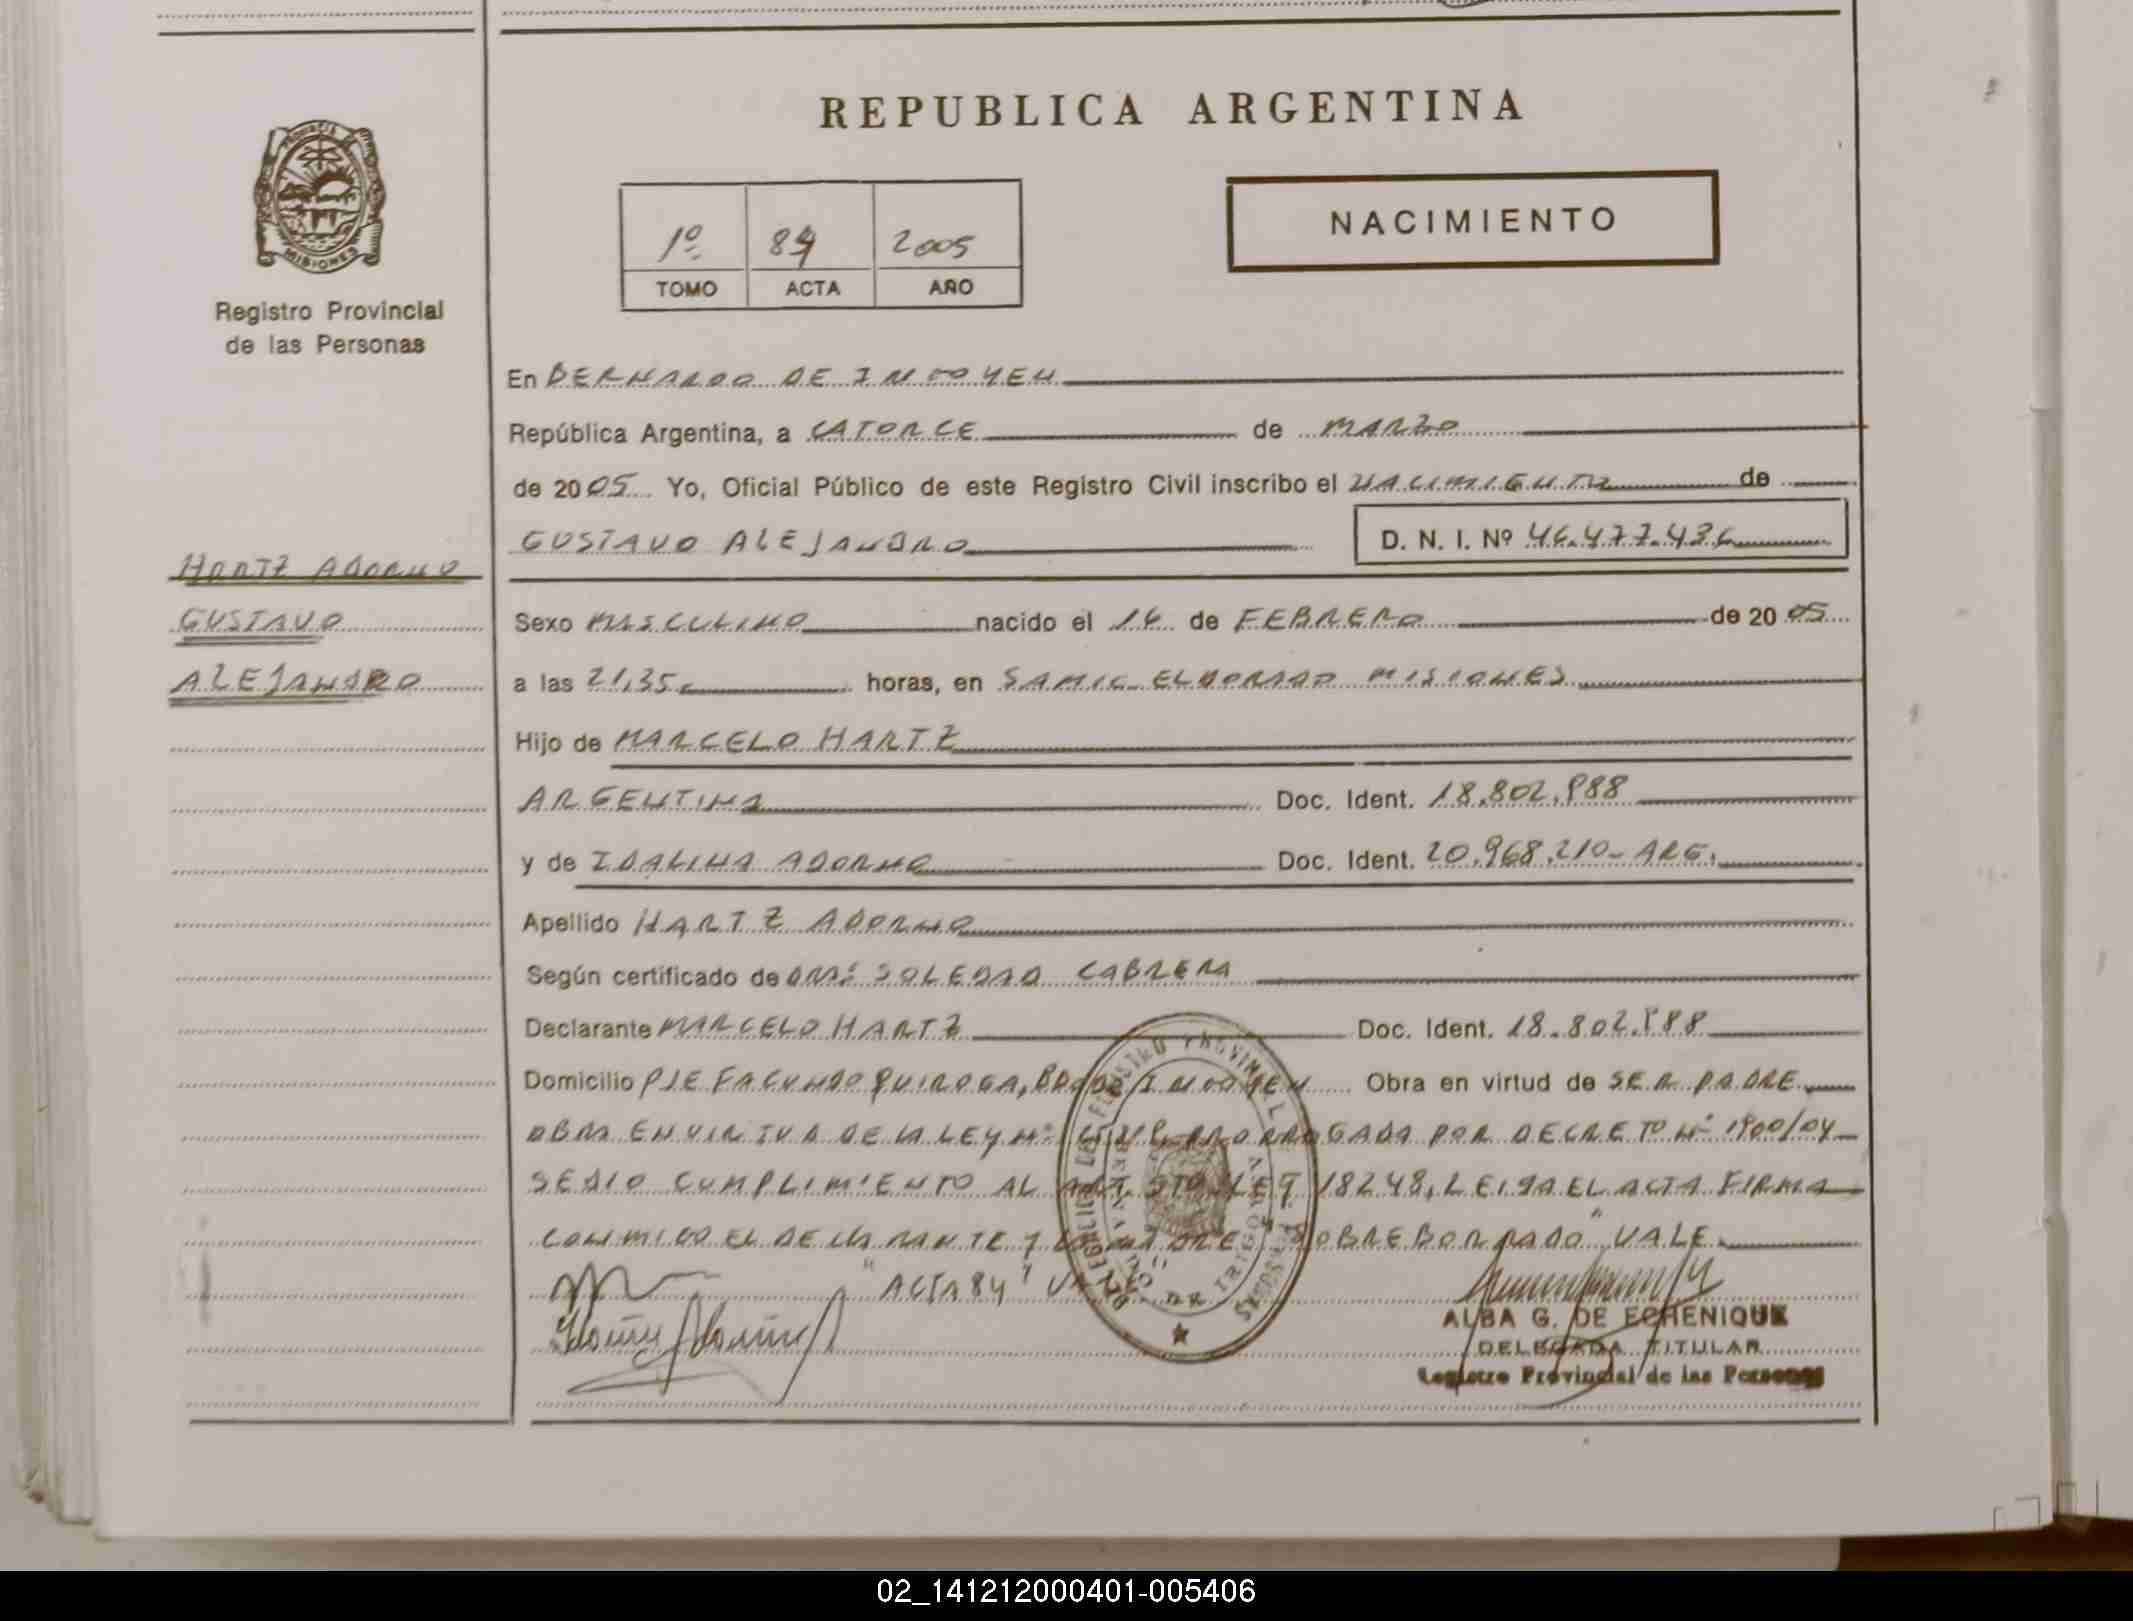 REPUBLICA ARGENTINA
NACIMIENTO
1º 84 2005
TOMO ACTA AÑO
MISIONES
Registro Provincial
de las Personas
En BERNARDO DE IRIGOYEN
República Argentina, a CATORCE de MARZO
de 2005 Yo, Oficial Público de este Registro Civil inscribo el NACIMIENTO de
GUSTAVO ALEJANDRO D. N. I. Nº 46.477.436
HARTZ ADORNO
GUSTAVO
ALEJANDRO
Sexo MASCULINO nacido el 16 de FEBRERO de 2005
a las 21,35 horas, en SAMIC ELDORADO MISIONES
Hijo de MARCELO HARTZ
ARGENTINA Doc. Ident. 18.802.988
y de IDALINA ADORNO Doc. Ident. 20.968.210- ARG.
Apellido HARTZ ADORNO
Según certificado de SOLEDAD CABRERA
Declarante MARCELO HARTZ Doc. Ident. 18.802.988
Domicilio PJE FACUNDO QUIROGA, Obra en virtud de SER PADRE
OBRA EN VIRTUD DE LA LEY Nº PRORROGADA POR DECRETO Nº 1900/04
SE DIO CUMPLIMIENTO AL ART. LEY 18248, LEIDA EL ACTA FIRMA
CONMIGO EL DECLARANTE Y LA MADRE "SOBREBORRADO" VALE
"ACTA 84"
ALBA G. DE ECHENIQUE
DELEGADA TITULAR
Registro Provincial de las Personas
02_141212000401-005406